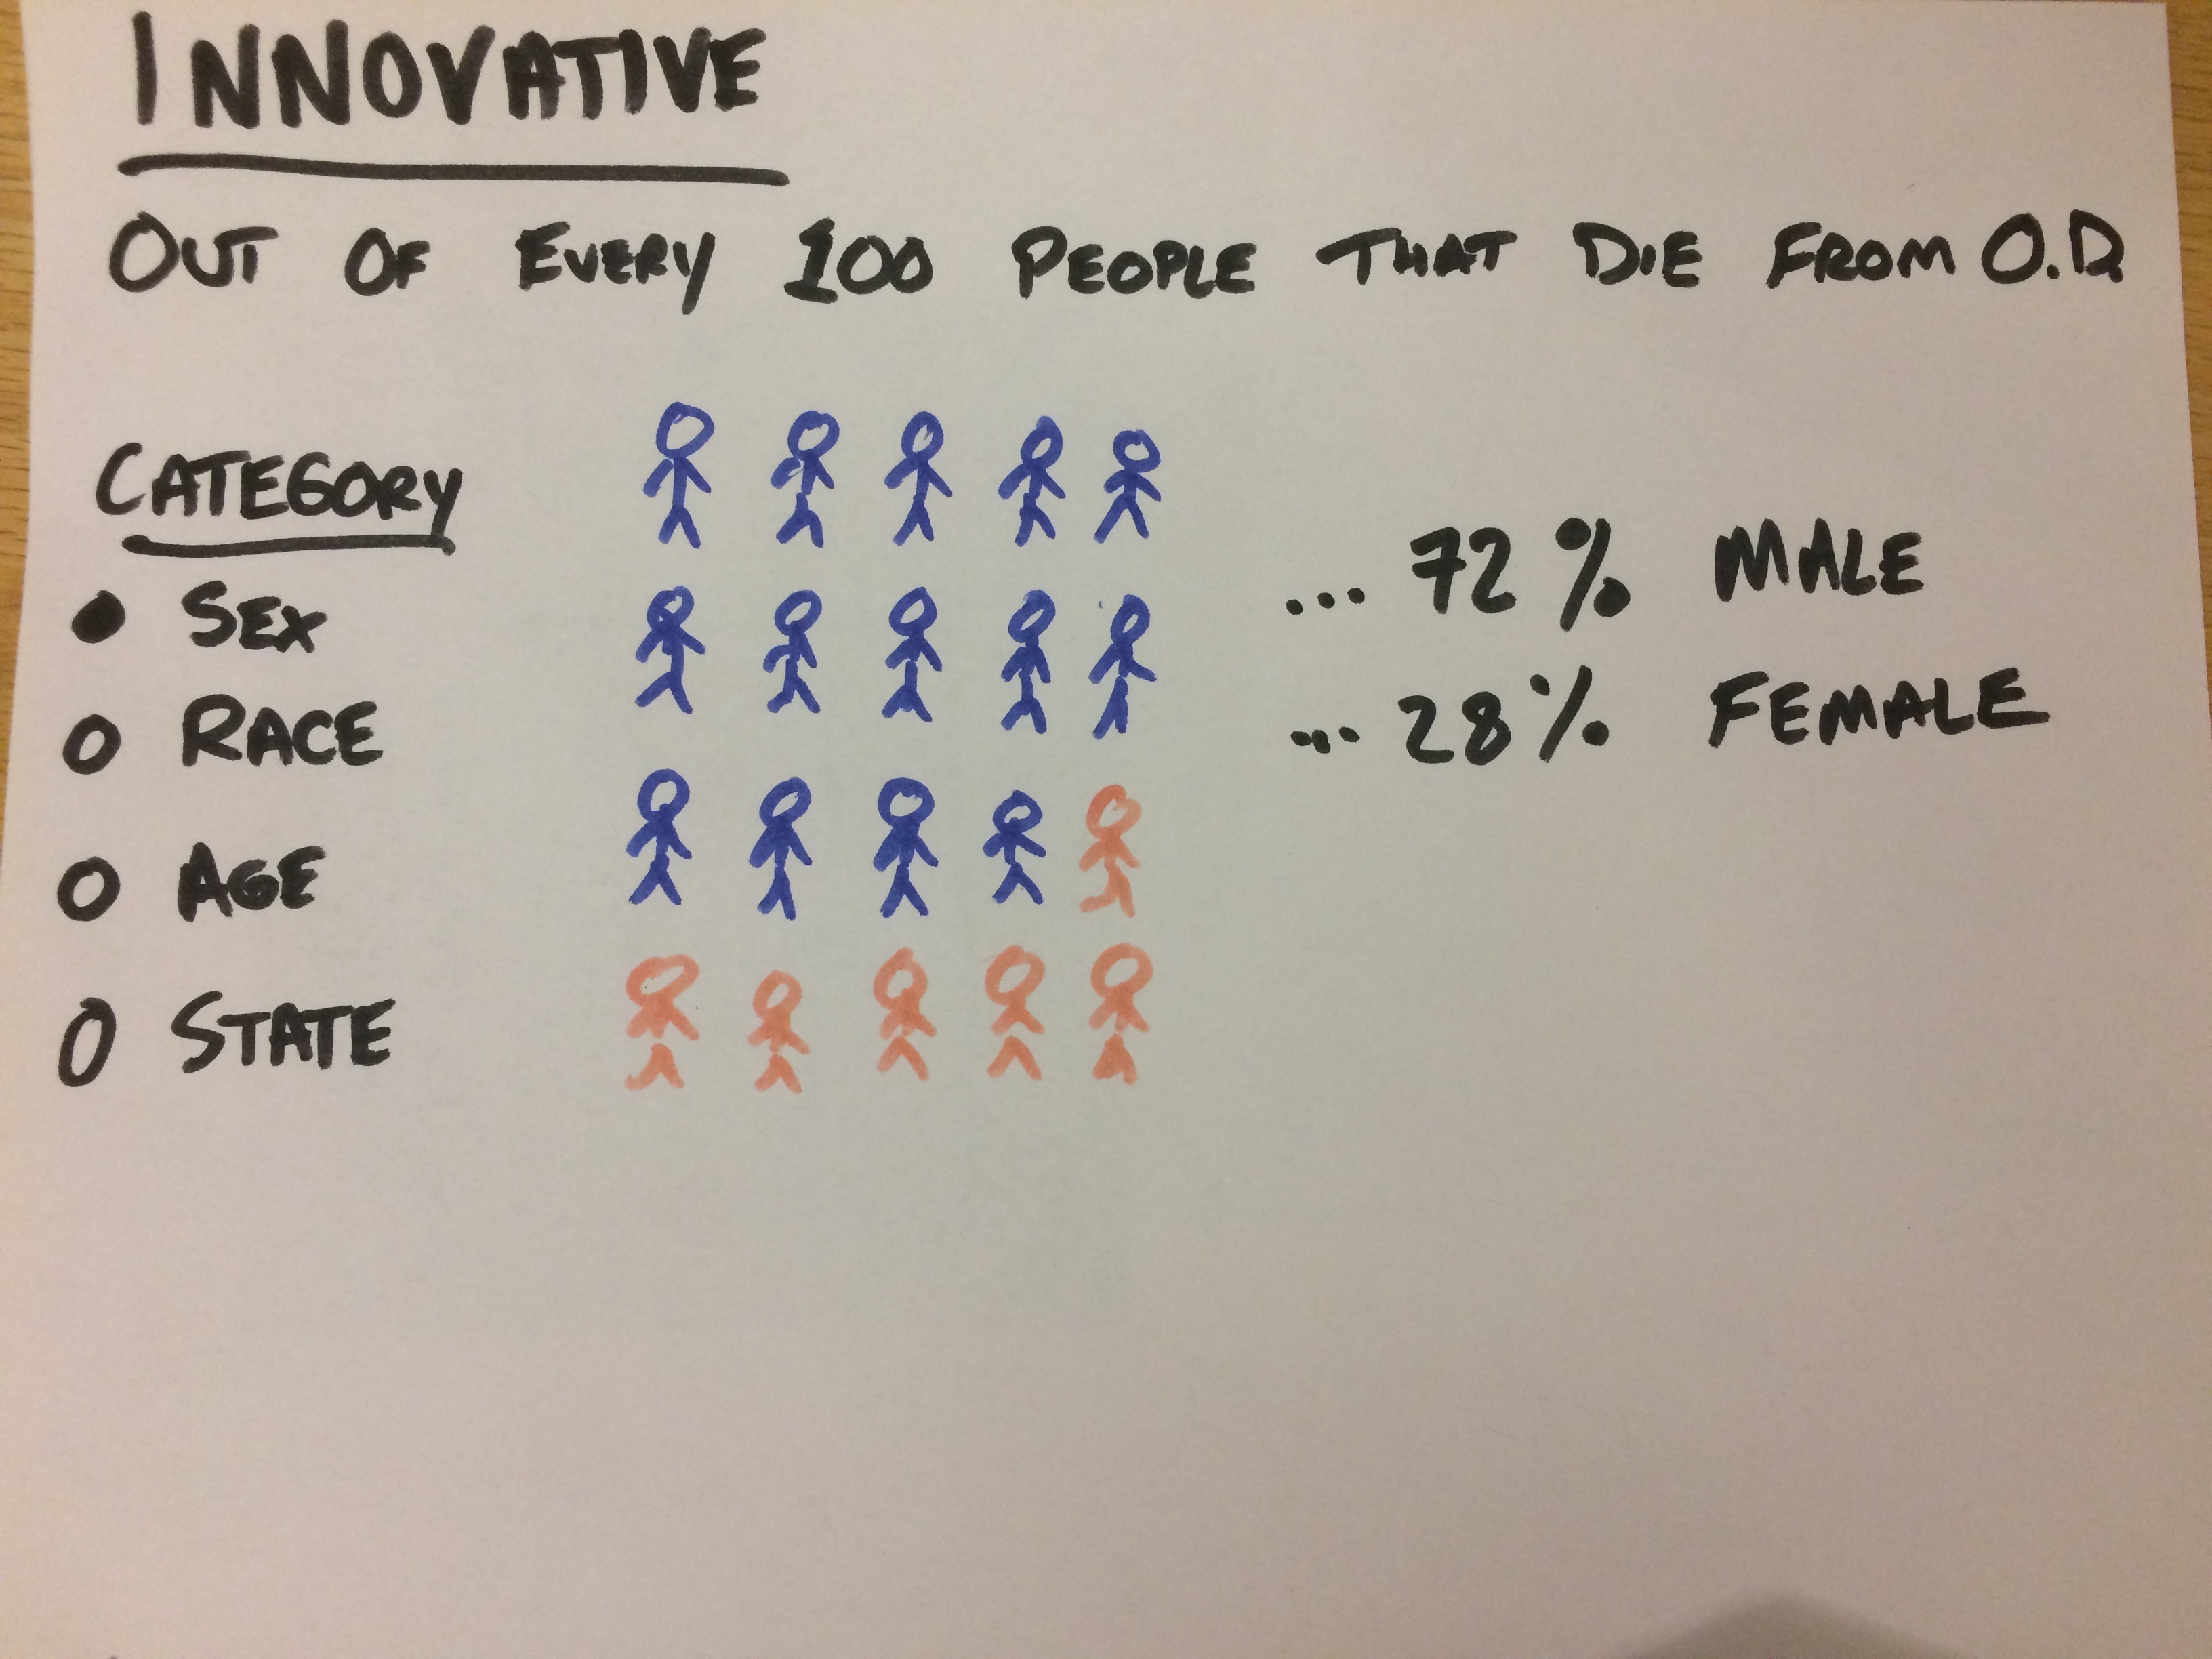 INNOVATIVE
OUT OF EVERY 100 PEOPLE THAT DIE FROM O.D
CATEGORY
SEX
RACE
AGE
STATE
... 72% MALE
... 28% FEMALE